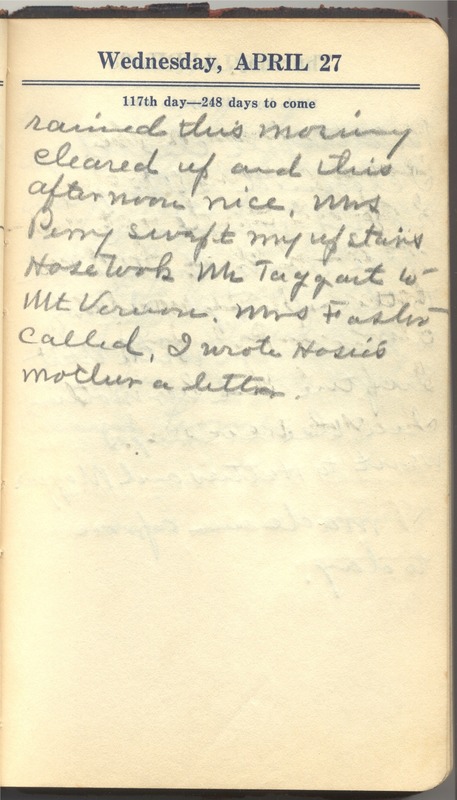 Wednesday, APRIL 27
117th day—248 days to come
rained this morning
cleared up and this
afternoon nice. Mrs
Perry swept my upstairs
Hose took Mr Taggart to
Mt Vernon. Mrs Foster
called, I wrote Hosie's
mother a letter.